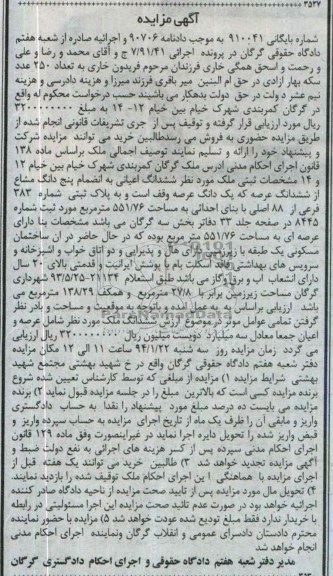 ۳۵۲۷
آگهی مزایده
شماره بایگانی ۹۱۰۰۴۱ به موجب دادنامه ۹۰۷۰۶ و اجرائیه صادره از شعبه هفتم
دادگاه حقوقی گرگان در پرونده اجرائی ۷/۹۱/۴۱ ج و آقای محمد و رضا و علی
و رحمت و اسحق همگی خاری فرزندان مرحوم فریدون خاری به تعداد ۲۵۰ عدد
سکه بهار آزادی در حق ام البنین میر باقری فرزند میرزا و هزینه دادرسی و هزینه
نیم عشر دولت در حق دولت بدهکار می باشند حسب درخواست محکوم له واقع
در گرگان کمربندی شهرک خیام بین خیام ۱۲- ۱۴ به مبلغ ۳۲۰۰۰۰۰۰۰۰
ریال مورد ارزیابی قرار گرفته و توقیف پس از جری تشریفات قانونی انجام شده از
طریق مزایده حضوری به فروش می رسد طالبین خرید می توانند مزایده شرکت
و پیشنهاد خود را ارائه و تسلیم نمایند توصیف اجمالی ملک براساس ماده ۱۳۸
قانون اجرای احکام مدنی آدرس ملک گرگان کمربندی شهرک خیام بین خیام ۱۲
و ۱۴ مشخصات ثبتی ملک مورد نظر ششدانگ اعیانی به انضمام پنج دانگ مشاع
از ششدانگ عرصه که یک دانگ عرصه وقف است و به پلاک ثبتی شماره ۳۸۳
فرعی از ۸۸ اصلی با بنای احداثی به مساحت ۵۵۱/۷۶ مترمربع مورد ثبت شماره
۸۴۴۵ در صفحه جلد ۳۳ دفاتر بخش سه گرگان می باشد مشخصات بنا دارای
عرصه ای به مساحت ۵۵۱/۷۶ متر مربع بوده که در حال حاضر در آن ساختمان
مسکونی یک طبقه با زیرزمین دارای هال و پذیرایی و دو اتاق خواب و آشپزخانه و
سرویس های بهداشتی فاقد اسکلت بام با پوشش ایرانیت و قدمتی بالای ۳۰ سال
دارای انشعاب آب و برق و گاز می باشد طبق استعلام ۲۱۱۳۴-۹۳/۵/۲۵ شهرداری
گرگان مساحت زیرزمین برابر با ۲۷/۸ مترمربع و همکف ۱۳۸/۲۹ مترمربع می
باشد ارزیابی براساس معاینه به عمل آمده و باتوجه به موقعیت و مساحت و بادر نظر
گرفتن تمامی عوامل موثر در موضوع ارزش ششدانگ ملک مورد نظر شامل عرصه و
اعیان جمعا معادل سه میلیارد دویست میلیون ریال ۳۲۰۰۰۰۰۰۰۰ ریال ارزیابی
می گردد زمان مزایده روز سه شنبه ۹۴/۱/۲۲ ساعت ۱۱ الی ۱۲ مکان مزایده
دفتر شعبه هفتم دادگاه حقوقی گرگان واقع در خ شهید بهشتی مجتمع شهید
بهشتی شرایط مزایده ۱) مزایده از مبلغی که توسط کارشناس تعیین شده شروع
برنده مزایده کسی است که بالاترین مبلغ را در جلسه مزایده قبول نماید ۲) برنده
مزایده می بایست ده درصد مبلغ مورد پیشنهاد را نقدا به حساب دادگستری
واریز و مابقی آن را ظرف یک ماه از تاریخ اجرای مزایده به حساب سپرده واریز و
قبض واریز شده را تحویل دایره اجرا نماید در غیراینصورت وفق ماده ۱۲۹ قانون
اجرای احکام مدنی سپرده پس از کسر هزینه های اجرائی به نفع دولت ضبط و
آگهی مزایده تجدید خواهد شد ۳) طالبین خرید می توانند یک هفته قبل از
اجرای مزایده با هماهنگی این اجرای احکام ملک توقیف شده را بازدید نمایند.
۴) تحویل مال مورد مزایده پس از تایید صحت مزایده از ناحیه دادگاه صادر کننده
اجرائیه خواهد بود در صورت عدم تائید صحت مزایده این اجرا مسئولیتی در رابطه
با خریدار ندارد فقط مبلغ تودیع شده عودت خواهد شد ۵) مزایده با حضور نماینده
محترم دادستان دادسرای عمومی و انقلاب گرگان و نماینده اجرای احکام مدنی
انجام خواهد شد
مدیر دفتر شعبه هفتم دادگاه حقوقی و اجرای احکام دادگستری گرگان